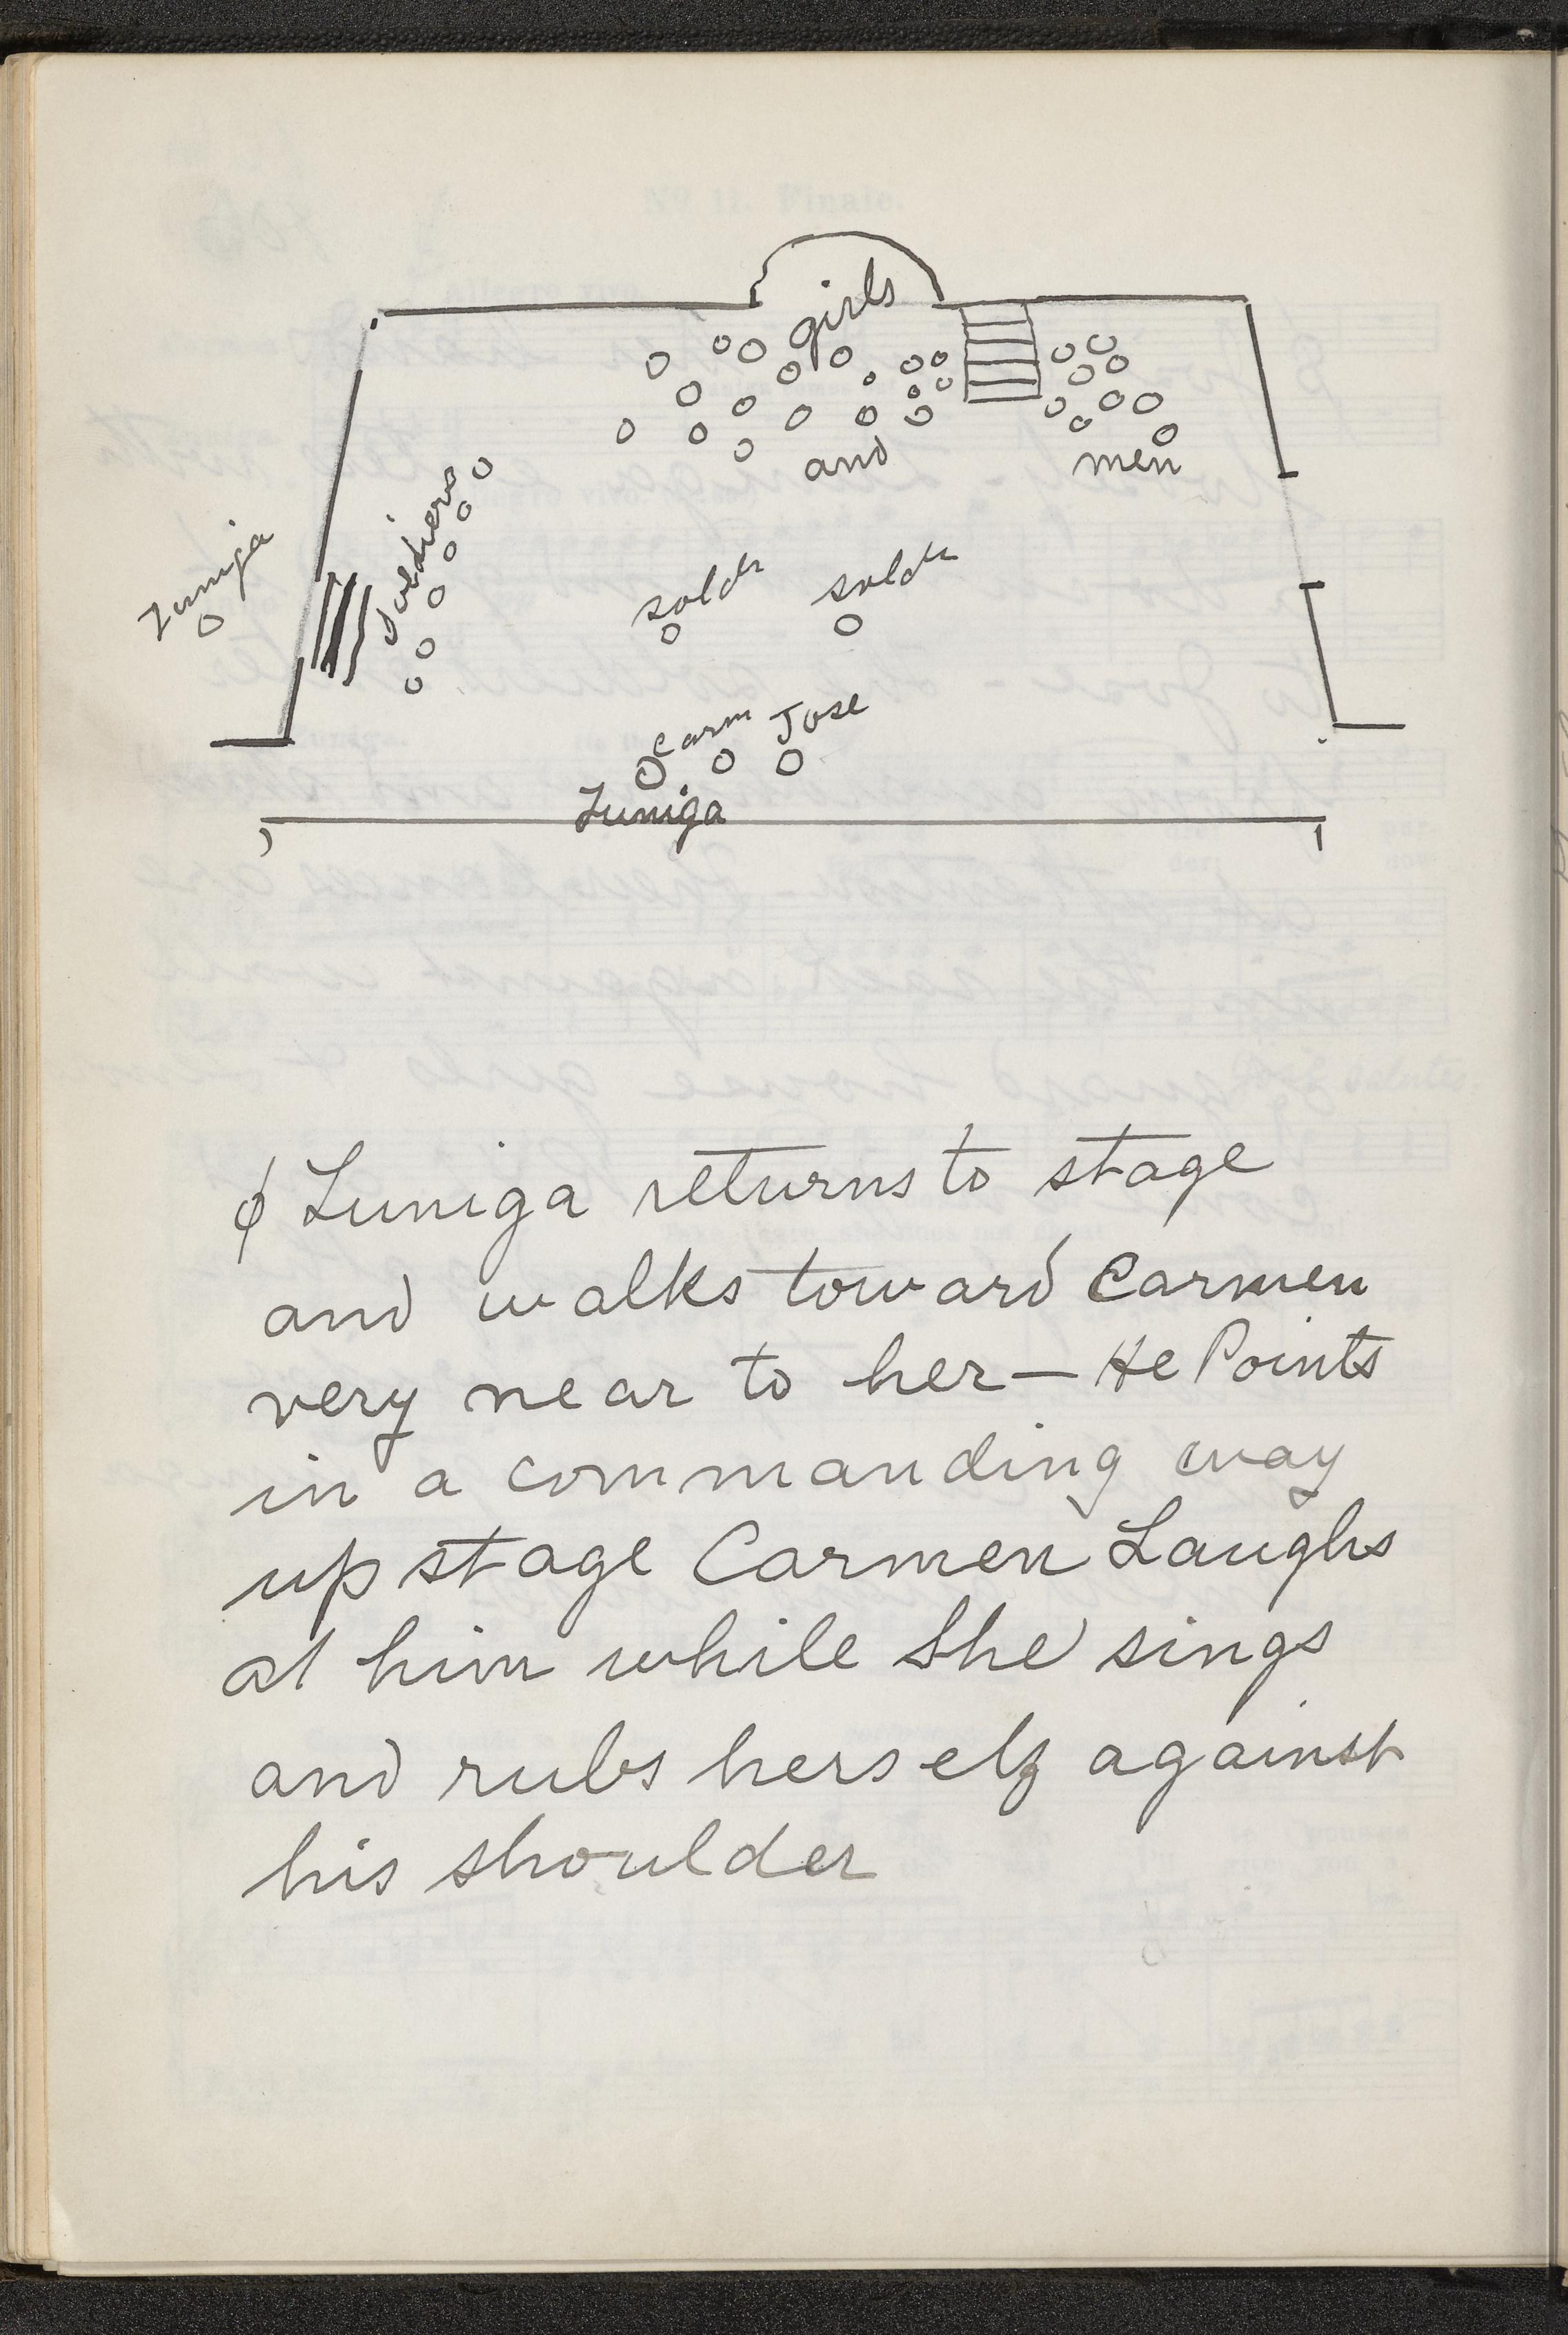 girls
and
men
soldiers
Zuniga
soldr
soldr
Carm
Jose
Zuniga
ϕ Zuniga returns to stage
and walks toward Carmen
very near to her — He Points
in a commanding way
up stage Carmen Laughs
at him while She sings
and rubs herself against
his shoulder